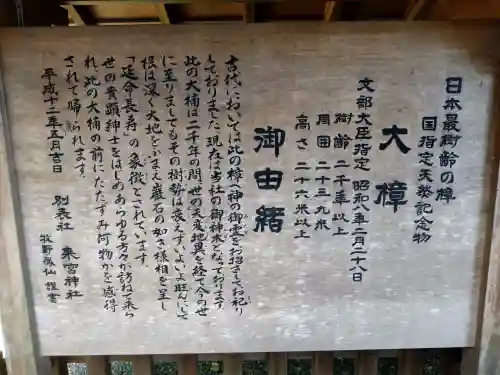 日本最樹齢の樟
国指定天然記念物
大樟
文部大臣指定 昭和八年二月二十八日
樹齢 二千年以上
周囲 二十三、九米
高さ 二十六米以上
御由緒
古代においては此の樟へ神の御霊をお招きしてお祀り
しておりました 現在は当社の御神木となっております
此の大楠は二千年の間 世の天変地異を経て今の世
に至りましてもその樹勢は衰えず いよいよ旺んにして
根は深く大地をふまえ巌石の如き様相を呈し
「延命長寿」の象徴とされています。
世の貴顕紳士をはじめあらゆる方々が訪ねて来ら
れ 此の大楠の前にたたずみ何物かを感得
されて帰られます。
平成十二年五月吉日
別表社 来宮神社
牧野 仙 謹書